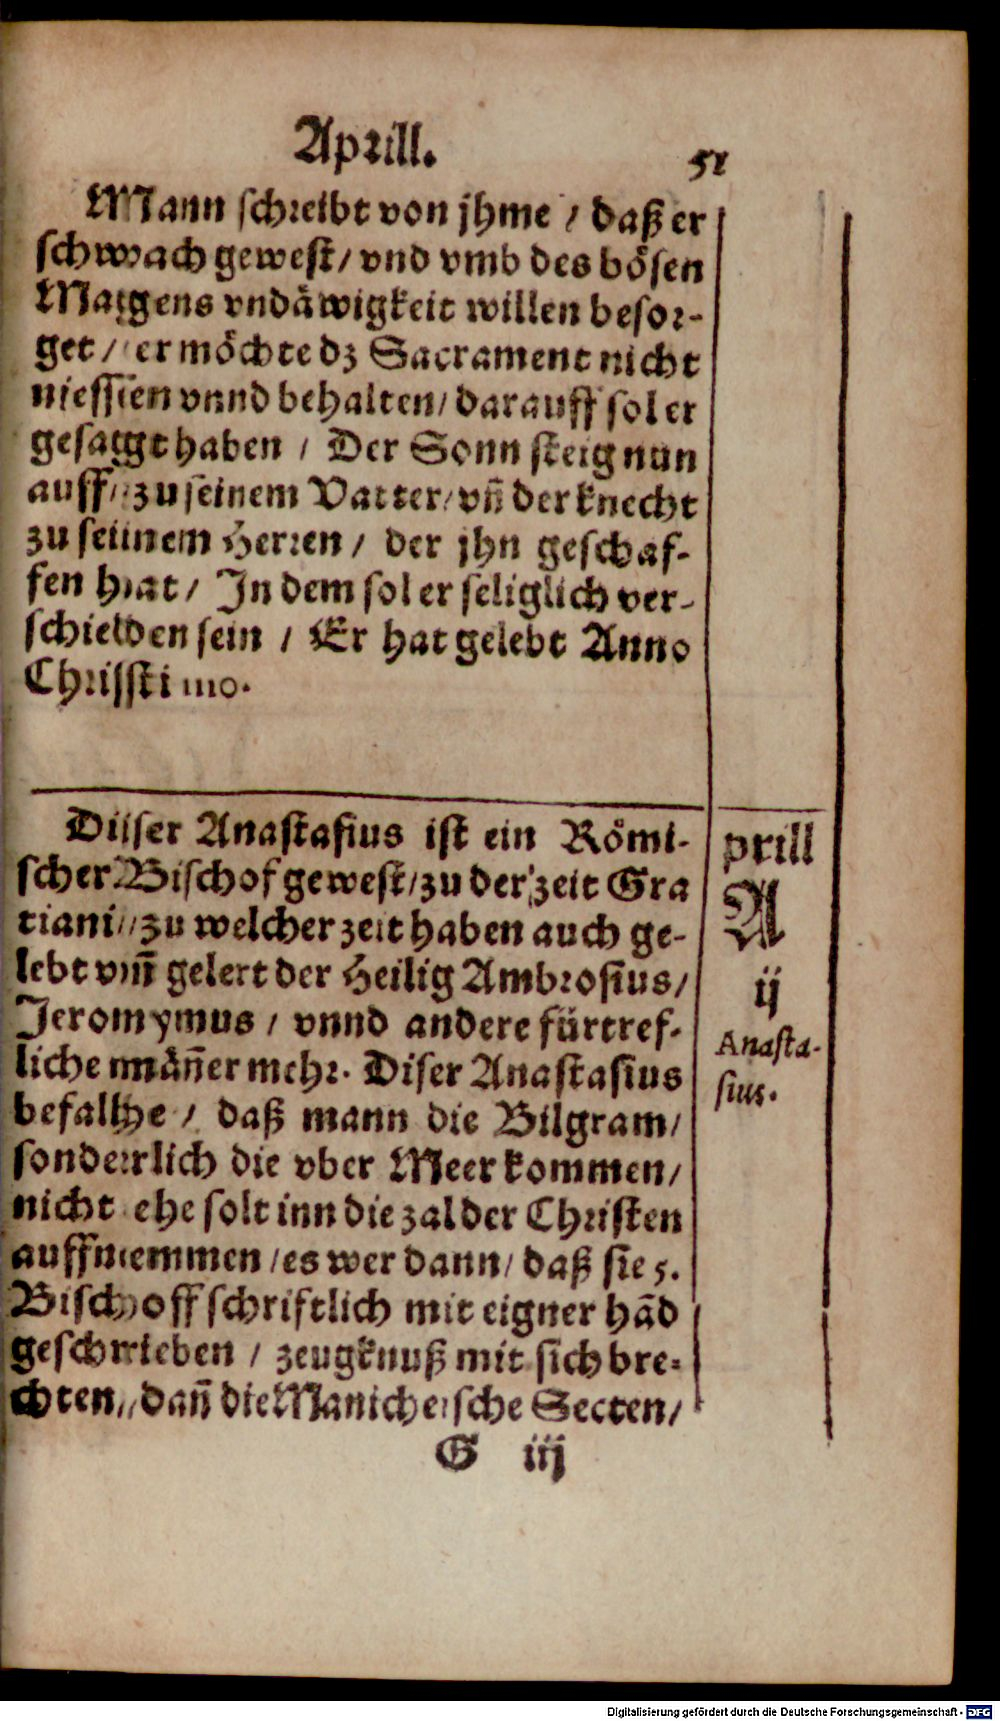 Aprill.
51
Mann schreibt von jhme / daß er
schwach gewest / vnd vmb des bösen
Magens vndäwigkeit willen besor-
get / er möchte dz Sacrament nicht
niessen vnnd behalten / darauff sol er
gesagt haben / Der Sonn steig nun
auff / zu seinem Vatter / vñ der knecht
zu seinem Herren / der jhn geschaf-
fen hat / In dem sol er seliglich ver-
schieden sein / Er hat gelebt Anno
Christi 1110.
Diser Anastasius ist ein Römi-
scher Bischof gewest / zu der zeit Gra
tiani / zu welcher zeit haben auch ge-
lebt vnñ gelert der Heilig Ambrosius /
Jeronymus / vnnd andere fürtref-
liche mäñer mehr. Diser Anastasius
befalhe / daß mann die Bilgram /
sonderlich die vber Meer kommen /
nicht ehe solt inn die zal der Christen
auffnemmen / es wer dann / daß sie 5.
Bischoff schriftlich mit eigner hãd
geschrieben / zeugknuß mit sich bre-
chten / dañ die Manicheische Secten /
prill
A
ij
Anasta-
sius.
G iij
Digitalisierung gefördert durch die Deutsche Forschungsgemeinschaft - DFG